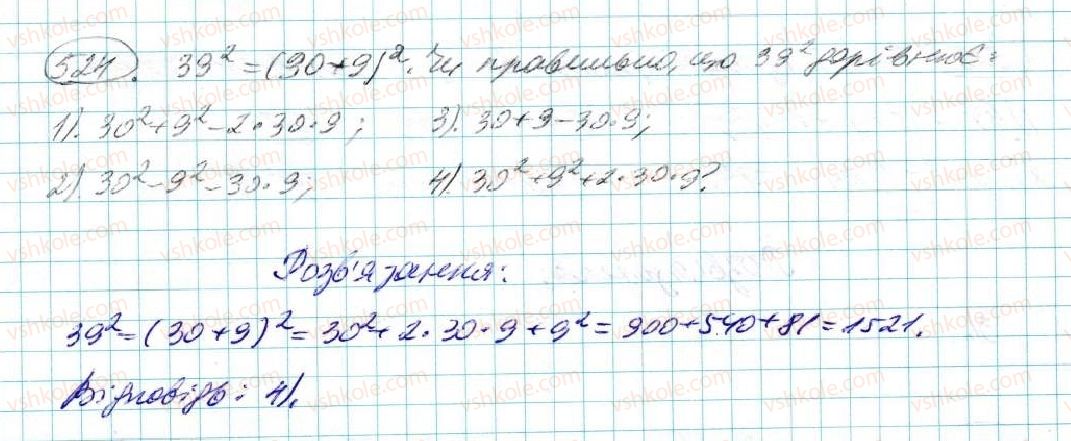 524. 39² = (30+9)². Чи правильно, що 39² дорівнює:
1). 30²+9²-2·30·9; 3). 30+9-30·9;
2). 30²-9²-30·9; 4). 30²+9²+2·30·9?
Розв'язання:
39² = (30+9)² = 30²+2·30·9+9² = 900+540+81 = 1521.
Відповідь: 4).
vshkole.com